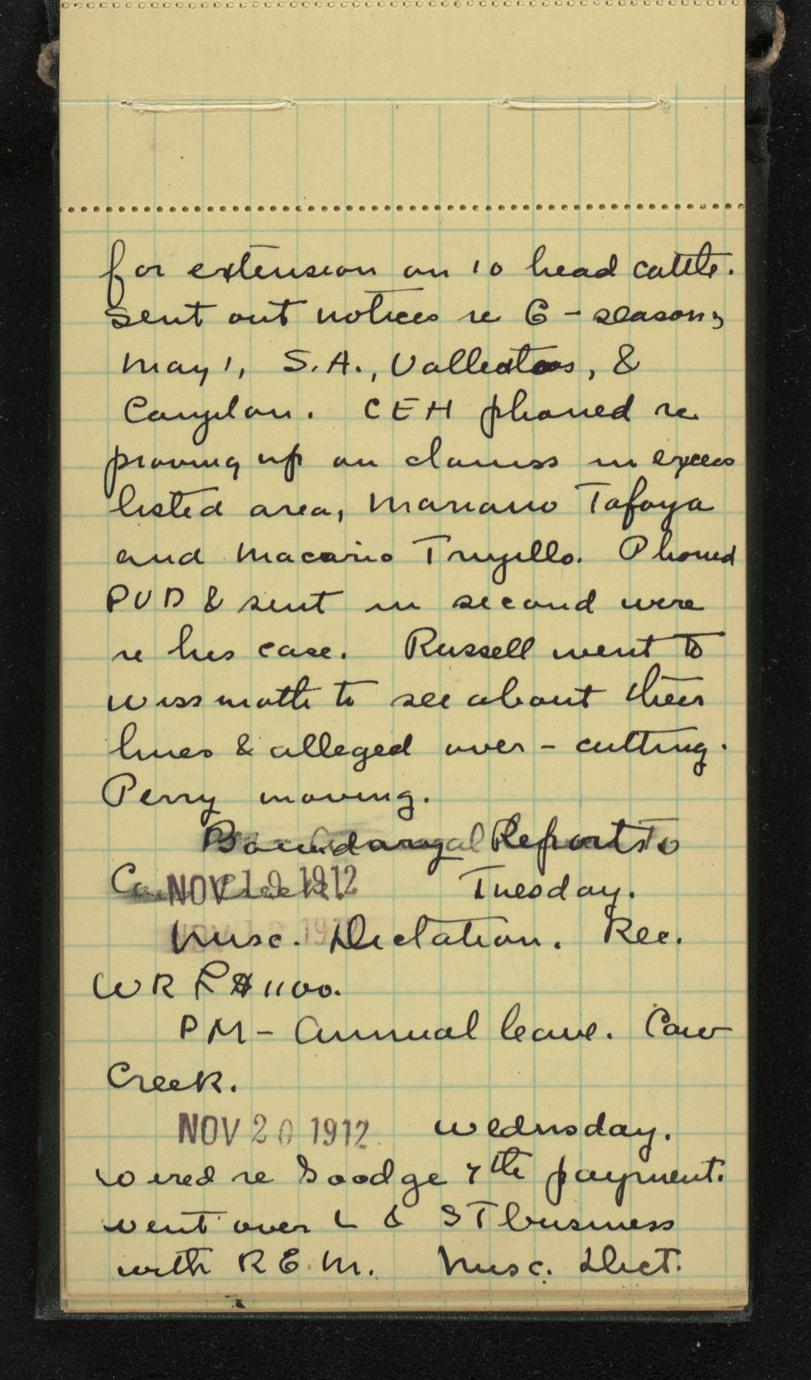 for extension on 10 head cattle.
Sent out notices re G - season,
May 1, S.A., Vallecitos, &
Canjelon. CEH phoned re
proving up on claims in excess
listed area, Mariano Tafoya
and Macario Trujillo. Phoned
PVD & sent in second wire
re his case. Russell went to
Wissmath to see about their
lines & alleged over-cutting.
Perry moving.
Boundary Reports to
NOV 19 1912 Tuesday.
Misc. Dictation. Rec.
WR $1100.
PM - Annual leave. Cow
Creek.
NOV 20 1912 Wednsday.
Wired re 7th payment.
Went over L & ST business
with R.E.M. Misc. Dict.